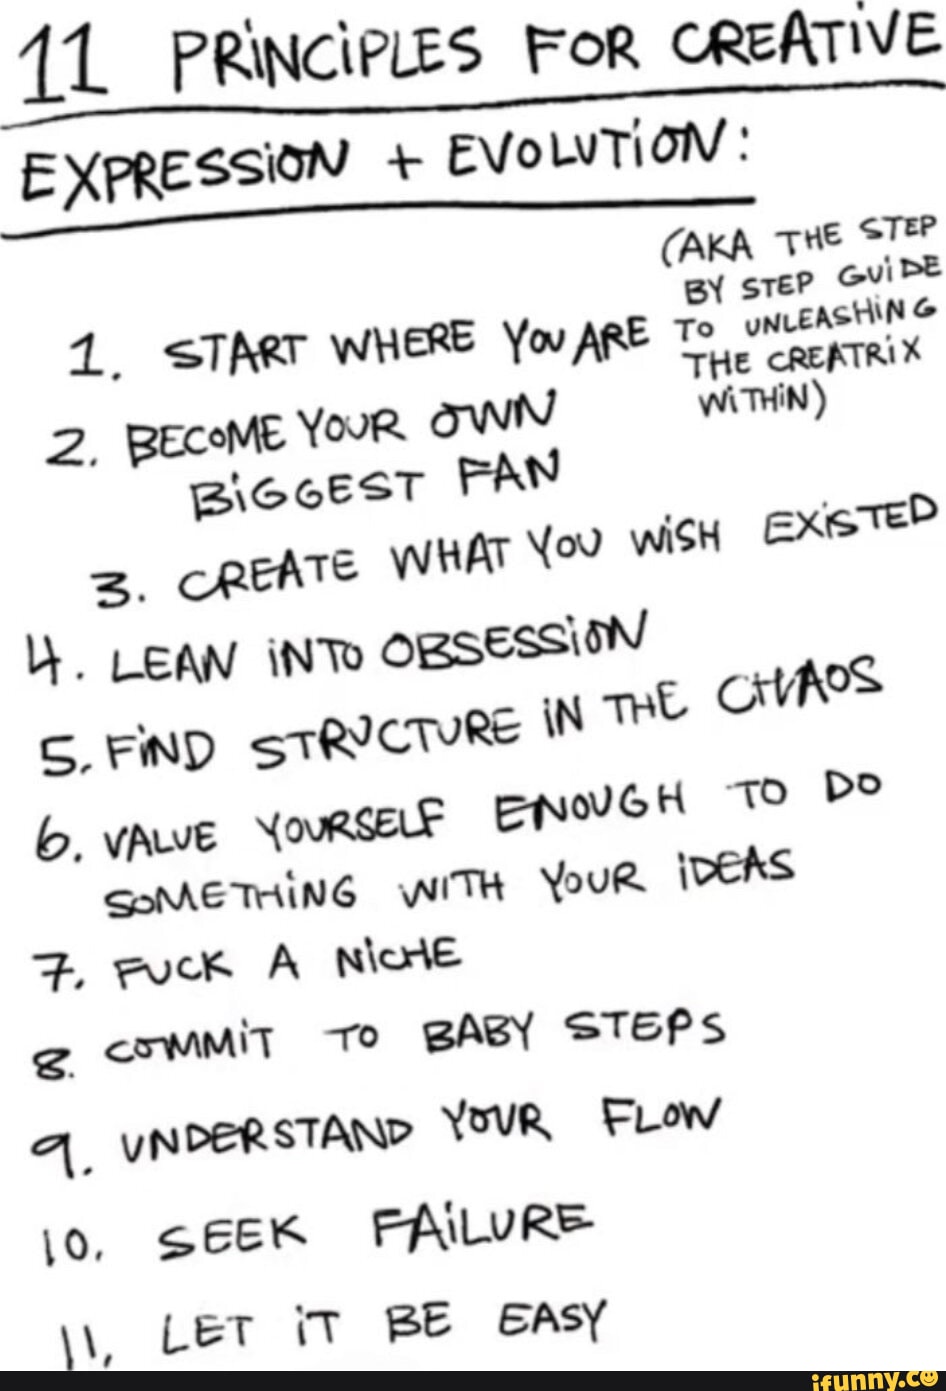 11 PRiNCiPLES FOR CREATiVE
EXPRESSiON + EVOLUTiON:
(AKA THE STEP
BY STEP GUiDE
TO UNLEASHiNG
THE CREATRiX
WiTHiN)
1. START WHERE YOU ARE
2. BECOME YOUR OWN
BiGGEST FAN
3. CREATE WHAT YOU WiSH EXiSTED
4. LEAN iNTO OBSESSiON
5. FiND STRUCTURE iN THE CHAOS
6. VALUE YOURSELF ENOUGH TO DO
SOMETHiNG WiTH YOUR iDEAS
7. FUCK A NiCHE
8. COMMiT TO BABY STEPS
9. UNDERSTAND YOUR FLOW
10. SEEK FAiLURE
11. LET iT BE EASY
ifunny.co